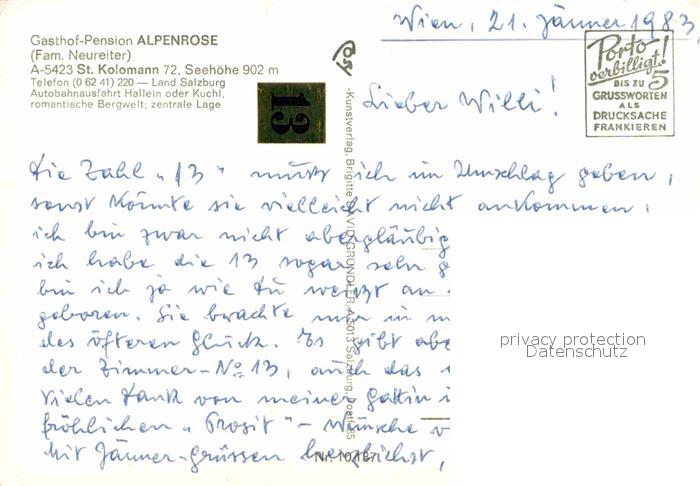 Wien, 21. Jänner 1983,
Gasthof-Pension ALPENROSE
(Fam. Neureiter)
A-5423 St. Kolomann 72, Seehöhe 902 m
Telefon (0 62 41) 220 — Land Salzburg
Autobahnausfahrt Hallein oder Kuchl,
romantische Bergwelt; zentrale Lage
13
Porto
verbilligt!
BIS ZU 5
GRUSSWORTEN
ALS
DRUCKSACHE
FRANKIEREN
Lieber Willi!
Die Zahl „13" muß ich im Umschlag geben,
sonst könnte sie vielleicht nicht ankommen.
ich bin zwar nicht abergläubig
ich habe die 13 sogar sehr
bin ich ja wie Du weißt an
geboren. Sie brachte mir in
des öfteren Glück. Es gibt
der Zimmer-No 13, auch das
Vielen Dank von meiner Gattin
fröhlichen „Prosit" - Wünsche
Mit Jänner-grüssen herzlichst,
Kunstverlag, Brigitte DAVID-GRÜNDLER, A-5013 Salzburg, Postf.
Nr. 10187
privacy protection
Datenschutz